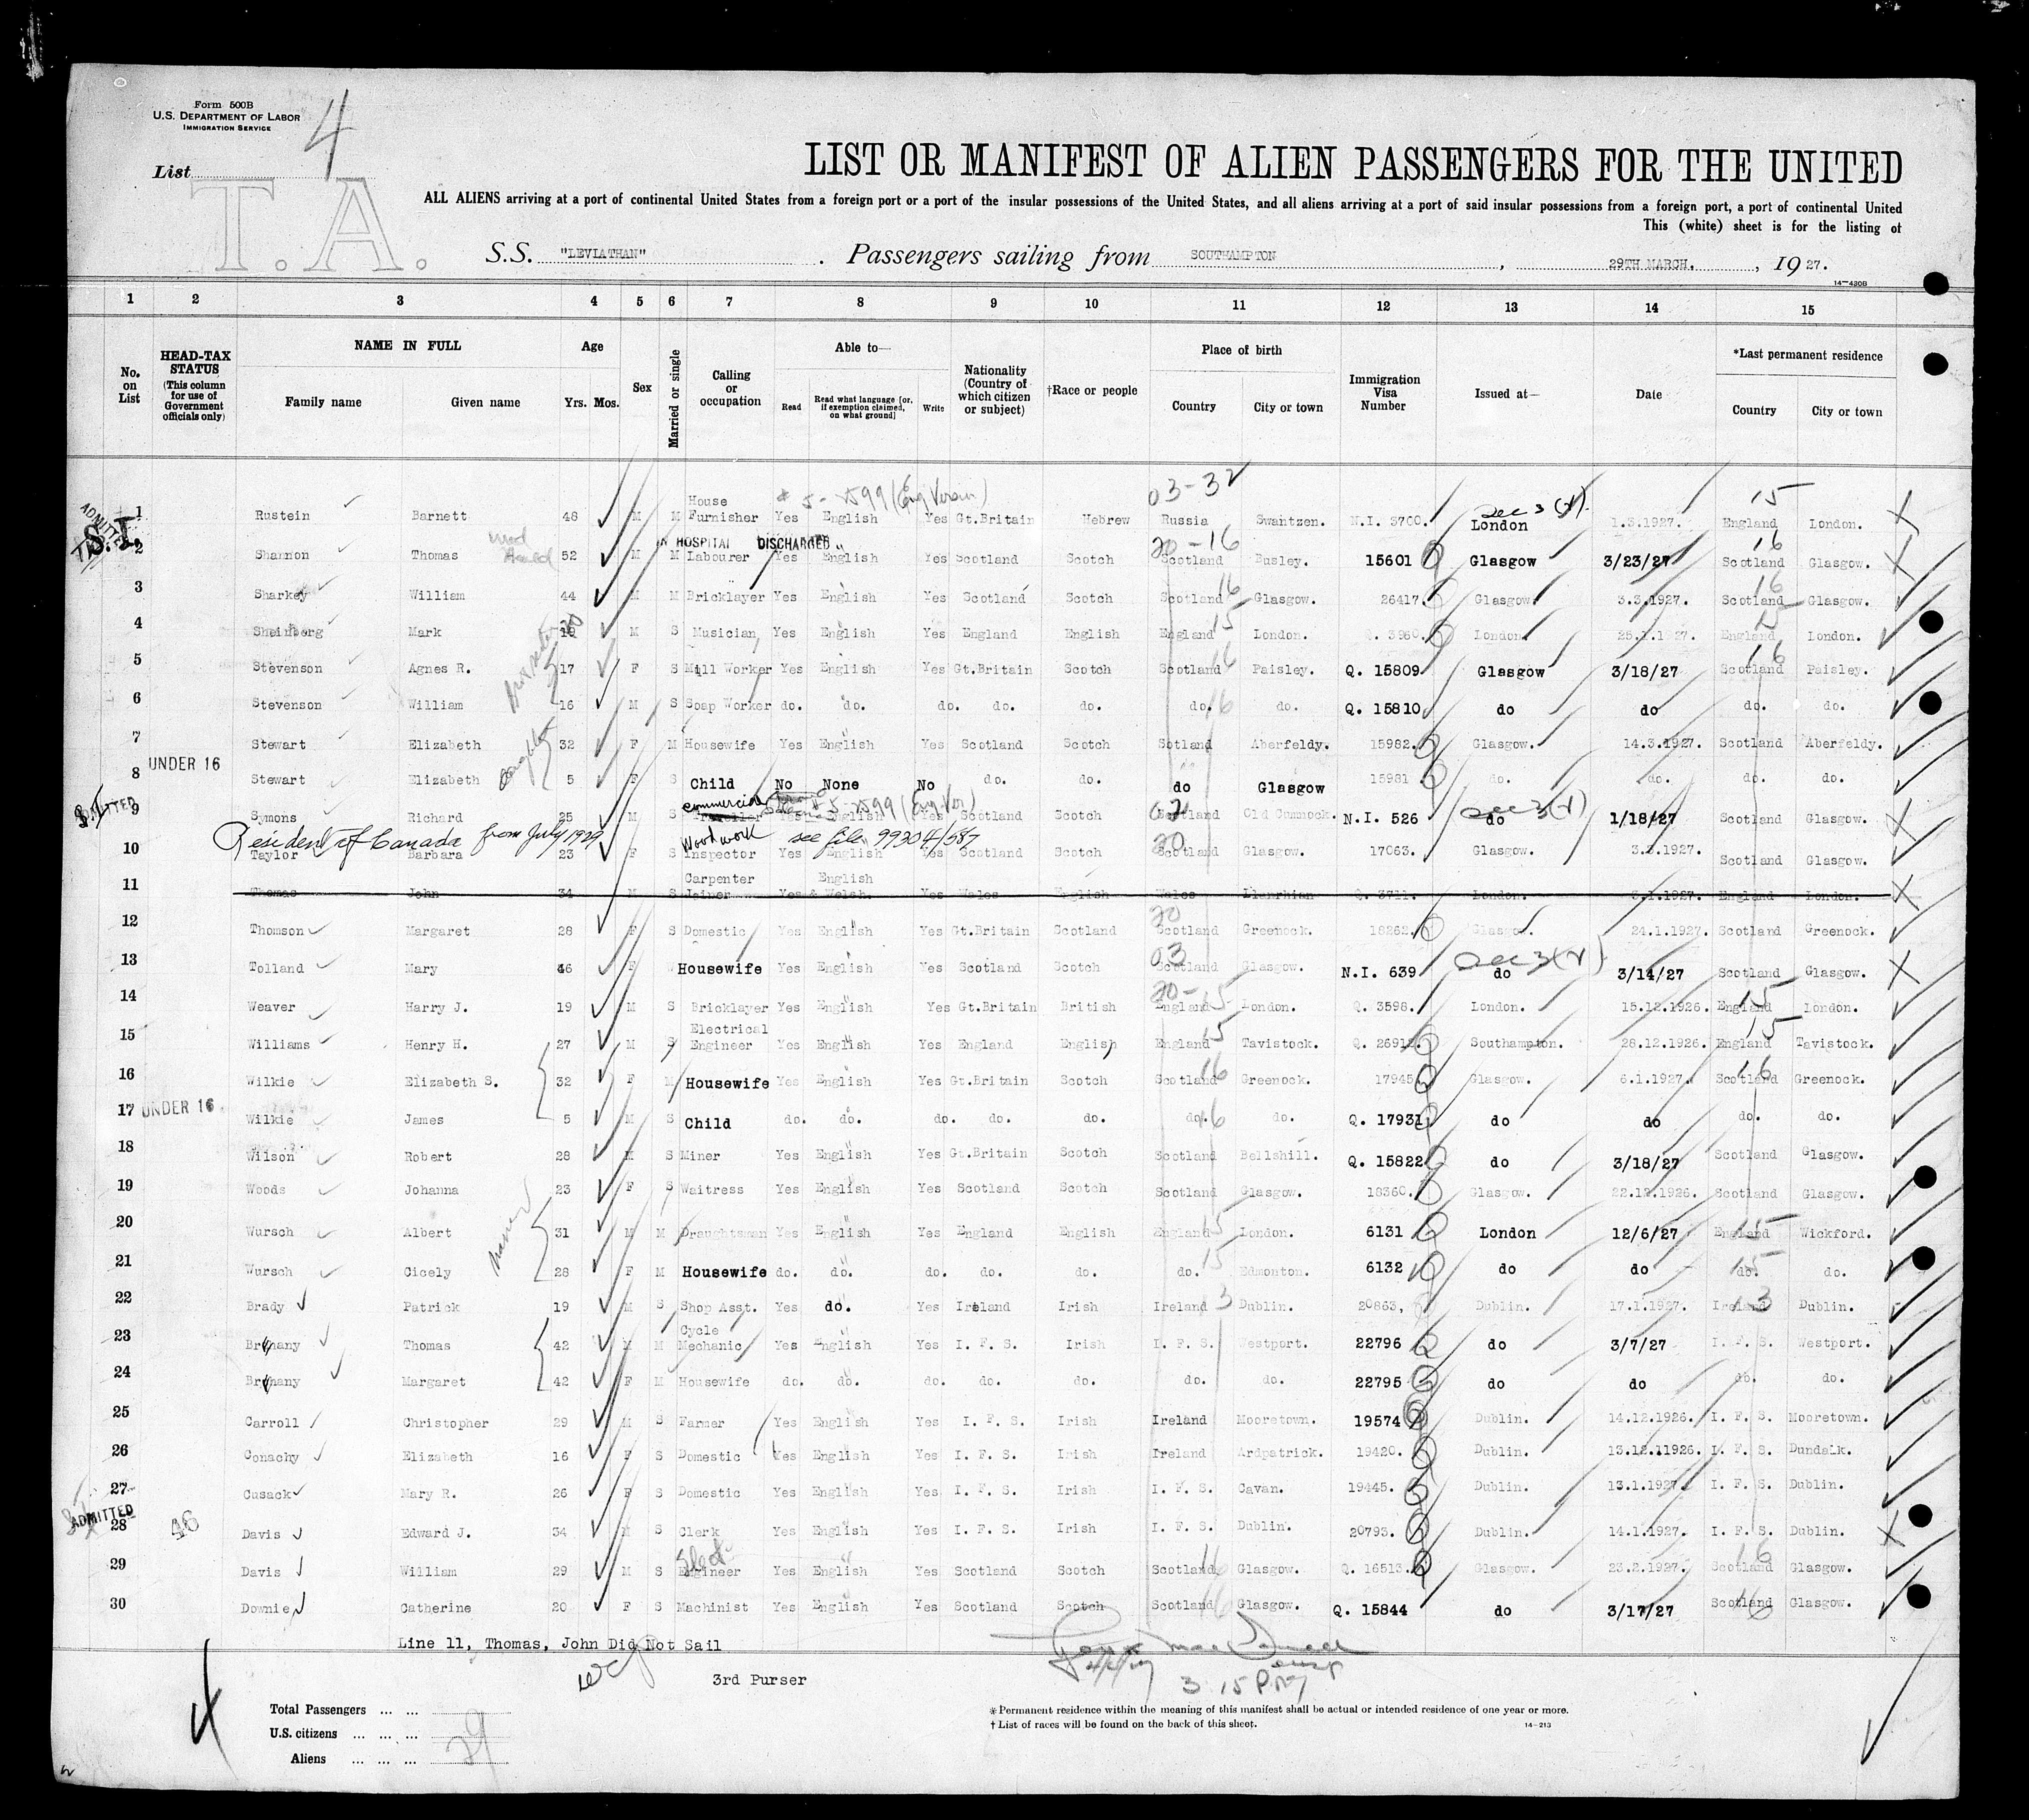 Form 500B
U.S. DEPARTMENT OF LABOR
IMMIGRATION SERVICE
List 4
T. A.
LIST OR MANIFEST OF ALIEN PASSENGERS FOR THE UNITED
ALL ALIENS arriving at a port of continental United States from a foreign port or a port of the insular possessions of the United States, and all aliens arriving at a port of said insular possessions from a foreign port, a port of continental United
This (white) sheet is for the listing of
S.S. "LEVIATHAN". Passengers sailing from SOUTHAMPTON, 29TH MARCH, 1927.
14—430B
1 2 3 4 5 6 7 8 9 10 11 12 13 14 15
No. on List
HEAD-TAX STATUS (This column for use of Government officials only)
NAME IN FULL Family name Given name
Age Yrs. Mos.
Sex
Married or single
Calling or occupation
Able to— Read Read what language [or, if exemption claimed, on what ground] Write
Nationality (Country of which citizen or subject)
†Race or people
Place of birth Country City or town
Immigration Visa Number
Issued at—
Date
*Last permanent residence Country City or town
# 5-2599 (Eng Version) 03-32 Sec 3 (r). 15
ADMITTED S.I. 1 Rustein Barnett 48 M M House Furnisher Yes English Yes Gt.Britain Hebrew Russia Swantzen. N.I. 3700. London 1.3.1927. England London.
IN HOSPITAL DISCHARGED 20-16 16
2 Shannon Thomas 52 M M Labourer Yes English Yes Scotland Scotch Scotland Busley. 15601 Glasgow 3/23/27 Scotland Glasgow.
3 Sharkey William 44 M M Bricklayer Yes English Yes Scotland Scotch Scotland 16 Glasgow. 26417. Glasgow. 3.3.1927. Scotland 16 Glasgow.
4 Sheinberg Mark 19 M S Musician Yes English Yes England English England 15 London. Q. 3960. London. 25.1.1927. England 15 London.
5 Stevenson Agnes R. 17 F S Mill Worker Yes English Yes Gt.Britain Scotch Scotland 16 Paisley. Q. 15809 Glasgow 3/18/27 Scotland 16 Paisley.
6 Stevenson William 16 M S Soap Worker do. do. do. do. do. do. 16 do. Q. 15810 do do do. do.
7 Stewart Elizabeth 32 F M Housewife Yes English Yes Scotland Scotch Sotland Aberfeldy. 15982. Glasgow. 14.3.1927. Scotland Aberfeldy.
UNDER 16 8 Stewart Elizabeth 5 F S Child No None No do. do. do Glasgow 15981 do. do. do. do.
5-2599 (Eng Ver) Sec 3 (r)
ADMITTED 9 Symons Richard 25 M S commercial Traveller Yes English Yes Scotland Scotch Scotland Old Cumnock. N.I. 526 do 1/18/27 Scotland Glasgow.
Resident of Canada from July 1929 see file 99304/587
10 Taylor Barbara 23 F S Woodwork Inspector Yes English Yes Scotland Scotch Scotland 20 Glasgow. 17063. Glasgow. 3.2.1927. Scotland Glasgow.
11 Thomas John 34 M S Carpenter Joiner Yes English & Welch. Yes Wales English Wales Llanrhian Q. 3711. London. 3.1.1927. England London.
12 Thomson Margaret 28 F S Domestic Yes English Yes Gt.Britain Scotland Scotland 20 Greenock. 18262. Glasgow. 24.1.1927. Scotland Greenock.
03 Sec 3 (r)
13 Tolland Mary 46 F Housewife Yes English Yes Scotland Scotch Scotland Glasgow. N.I. 639 do 3/14/27 Scotland Glasgow.
14 Weaver Harry J. 19 M S Bricklayer Yes English Yes Gt.Britain British England 20-15 London. Q. 3598. London. 15.12.1926. England 15 London.
15 Williams Henry H. 27 M S Electrical Engineer Yes English Yes England English England 15 Tavistock. Q. 2691 Southampton. 28.12.1926. England 15 Tavistock.
16 Wilkie Elizabeth S. 32 F M Housewife Yes English Yes Gt.Britain Scotch Scotland 16 Greenock. 17945 Glasgow. 6.1.1927. Scotland 16 Greenock.
UNDER 16 17 Wilkie James 5 M S Child do. do. do. do. do. do. 16 do. Q. 17931 do do do. do.
18 Wilson Robert 28 M S Miner Yes English Yes Gt.Britain Scotch Scotland Bellshill. Q. 15822 do 3/18/27 Scotland Glasgow.
19 Woods Johanna 23 F S Waitress Yes English Yes Scotland Scotch Scotland Glasgow. 18360. Glasgow. 22.12.1926. Scotland Glasgow.
20 Wursch Albert 31 M M Draughtsman Yes English Yes England English England 15 London. 6131 London 12/6/27 England 15 Wickford.
21 Wursch Cicely 28 F M Housewife do. do. do. do. do. do. 15 Edmonton. 6132 do do do. 15 do.
22 Brady Patrick 19 M S Shop Asst. Yes do. Yes Ireland Irish Ireland 3 Dublin. 20863, Dublin. 17.1.1927. Ireland 3 Dublin.
23 Brehany Thomas 42 M M Cycle Mechanic Yes English Yes I. F. S. Irish I. F. S. Westport. 22796 do 3/7/27 I. F. S. Westport.
24 Brehany Margaret 42 F M Housewife do. do. do. do. do. do. do. 22795 do do do. do.
25 Carroll Christopher 29 M S Farmer Yes English Yes I. F. S. Irish Ireland Mooretown. 19574 Dublin. 14.12.1926. I. F. S. Mooretown.
26 Conachy Elizabeth 16 F S Domestic Yes English Yes I. F. S. Irish Ireland Ardpatrick. 19420. Dublin. 13.12.11926. I. F. S. Dundalk.
27 Cusack Mary R. 26 F S Domestic Yes English Yes I. F. S. Irish I. F. S. Cavan. 19445. Dublin. 13.1.1927. I. F. S. Dublin.
ADMITTED 28 46 Davis Edward J. 34 M S Clerk Yes English Yes I. F. S. Irish I. F. S. Dublin. 20793. Dublin. 14.1.1927. I. F. S. Dublin.
29 Davis William 29 M S Elect Engineer Yes English Yes Scotland Scotch Scotland 16 Glasgow. Q. 16513. Glasgow. 23.2.1927. Scotland 16 Glasgow.
30 Downie Catherine 20 F S Machinist Yes English Yes Scotland Scotch Scotland 16 Glasgow. Q. 15844 do 3/17/27 Scotland 16 Glasgow.
Line 11, Thomas, John Did Not Sail
3rd Purser
3 15 PM
Total Passengers ... ...
U.S. citizens ... ... ...
Aliens ... ... ... 29
* Permanent residence within the meaning of this manifest shall be actual or intended residence of one year or more.
† List of races will be found on the back of this sheet.
14—213